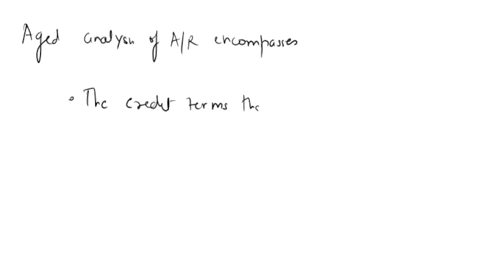 Aged analysis of A/R encompasses
• The credit terms the